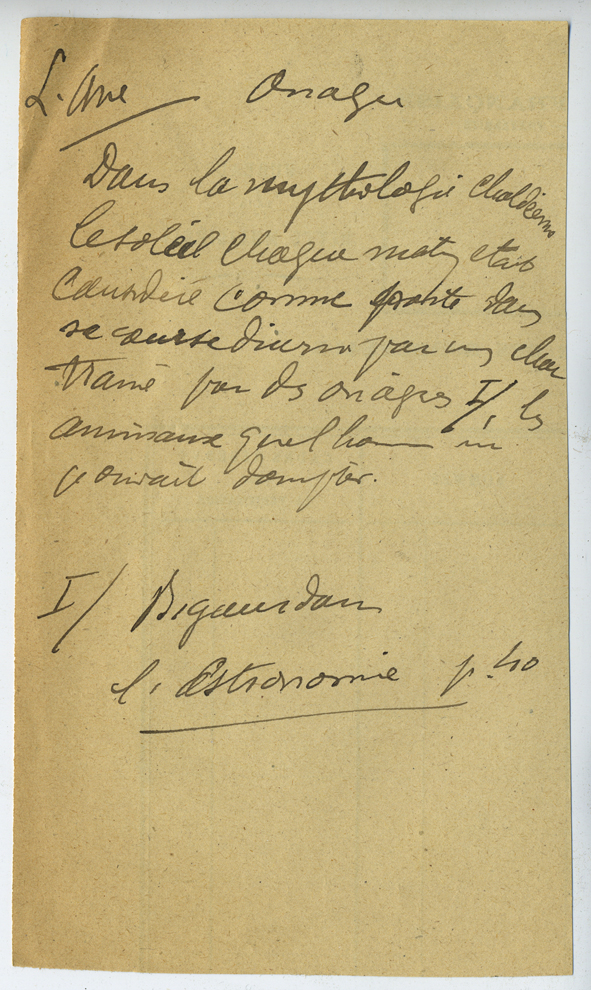 L'Ane Onagre
Dans la mythologie Chaldéenne
le soleil chaque matin était
Considéré comme porté dans
sa course diurne par un char
trainé par ds onagres I/, les
animaux que l'homme ne
pouvait dompter.
I/ Bigourdan
l'Astronomie p. 40